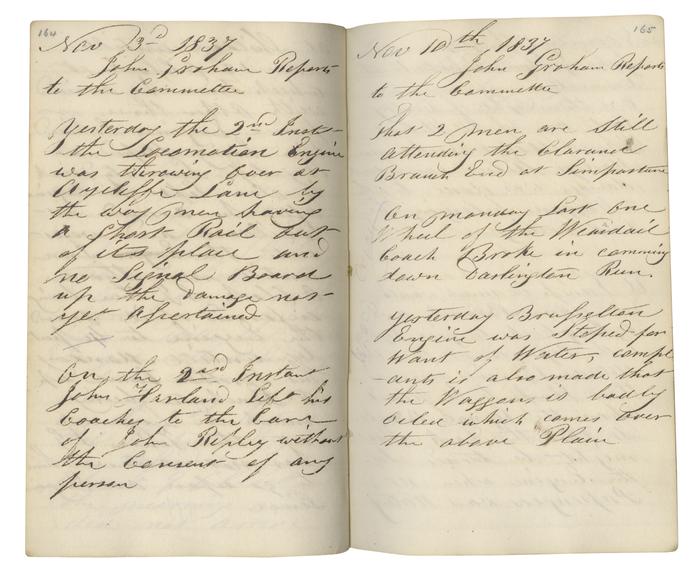 164
Nov 3rd 1837
John Graham Reports
to the Committee
Yesterday the 2nd Inst
the Locomotion Engine
was throwing over at
Aycliffe Lane by
the way men having
a Short Rail out
of its place and
no Signal Board
up the damage not
yet Assertained
On the 2nd Instant
John Left his
Coaches to the Care
of John Ropley without
the Consent of any
person
165
Nov 10th 1837
John Graham Reports
to the Committee
That 2 men are still
attending the Clarance
Branch End at Simpasture
On monday Last One
Wheel of the Weardail
Coach Broke in comming
down Darlington Run.
yesterday Brusselton
Engine was Stoped for
Want of Water, compl
-ants is also made that
the Waggons is badly
oiled which comes over
the above Plain